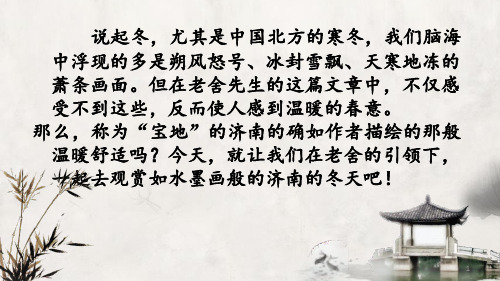 说起冬，尤其是中国北方的寒冬，我们脑海
中浮现的多是朔风怒号、冰封雪飘、天寒地冻的
萧条画面。但在老舍先生的这篇文章中，不仅感
受不到这些，反而使人感到温暖的春意。
那么，称为“宝地”的济南的确如作者描绘的那般
温暖舒适吗？今天，就让我们在老舍的引领下，
一起去观赏如水墨画般的济南的冬天吧！